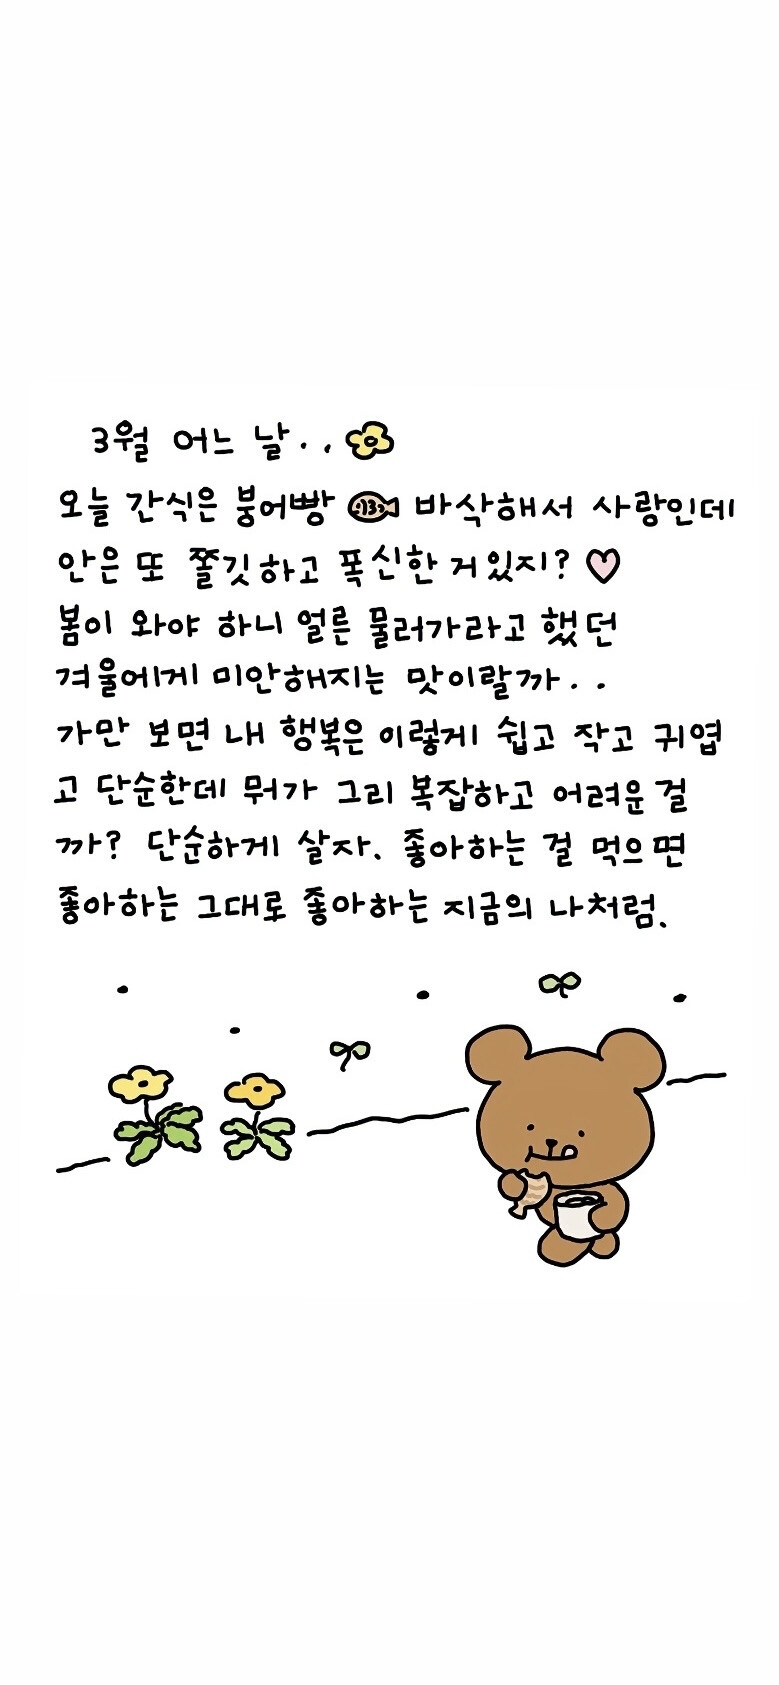 3월 어느 날..
오늘 간식은 붕어빵 바삭해서 사랑인데
안은 또 쫄깃하고 폭신한 거 있지?
봄이 와야 하니 얼른 물러가라고 했던
겨울에게 미안해지는 맛이랄까..
가만 보면 내 행복은 이렇게 쉽고 작고 귀엽
고 단순한데 뭐가 그리 복잡하고 어려운 걸
까? 단순하게 살자. 좋아하는 걸 먹으면
좋아하는 그대로 좋아하는 지금의 나처럼.